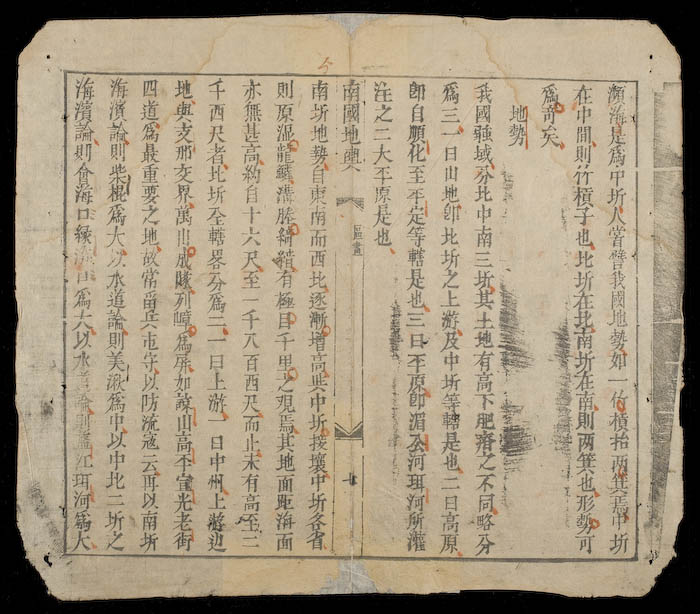 瀕海是爲中圻人嘗譬我國地勢如一竹槓抬兩箕焉中圻
在中間則竹槓子也北圻在北南圻在南則兩箕也形勢可
爲奇矣
地勢
我國疆域分北中南三圻其土地有高下肥瘠之不同略分
爲三一曰山地卽北圻之上游及中圻等轄是也二曰高原
卽自順化至平定等轄是也三曰平原卽湄公河珥河所灌
注之二大平原是也
南國地輿
區畫
七
南圻地勢自東南而西北逐漸增高與中圻接壤中圻各省
則原濕龍鱗溝塍綺繡有極目千里之觀焉其地面距海面
亦無甚高約自十六尺至一千八百西尺而止未有高至二
千西尺者北圻全轄畧分爲二一曰上游一曰中州上游邊
地與支那交界萬山成隊列嶂爲屏如諒山高平宣光老街
四道爲最重要之地故常留兵屯守以防流寇云再以南圻
海濱論則柴棍爲大以水道論則美湫爲中以中北二圻之
海濱論則會海口 爲大以水道論則瀘江珥河爲大